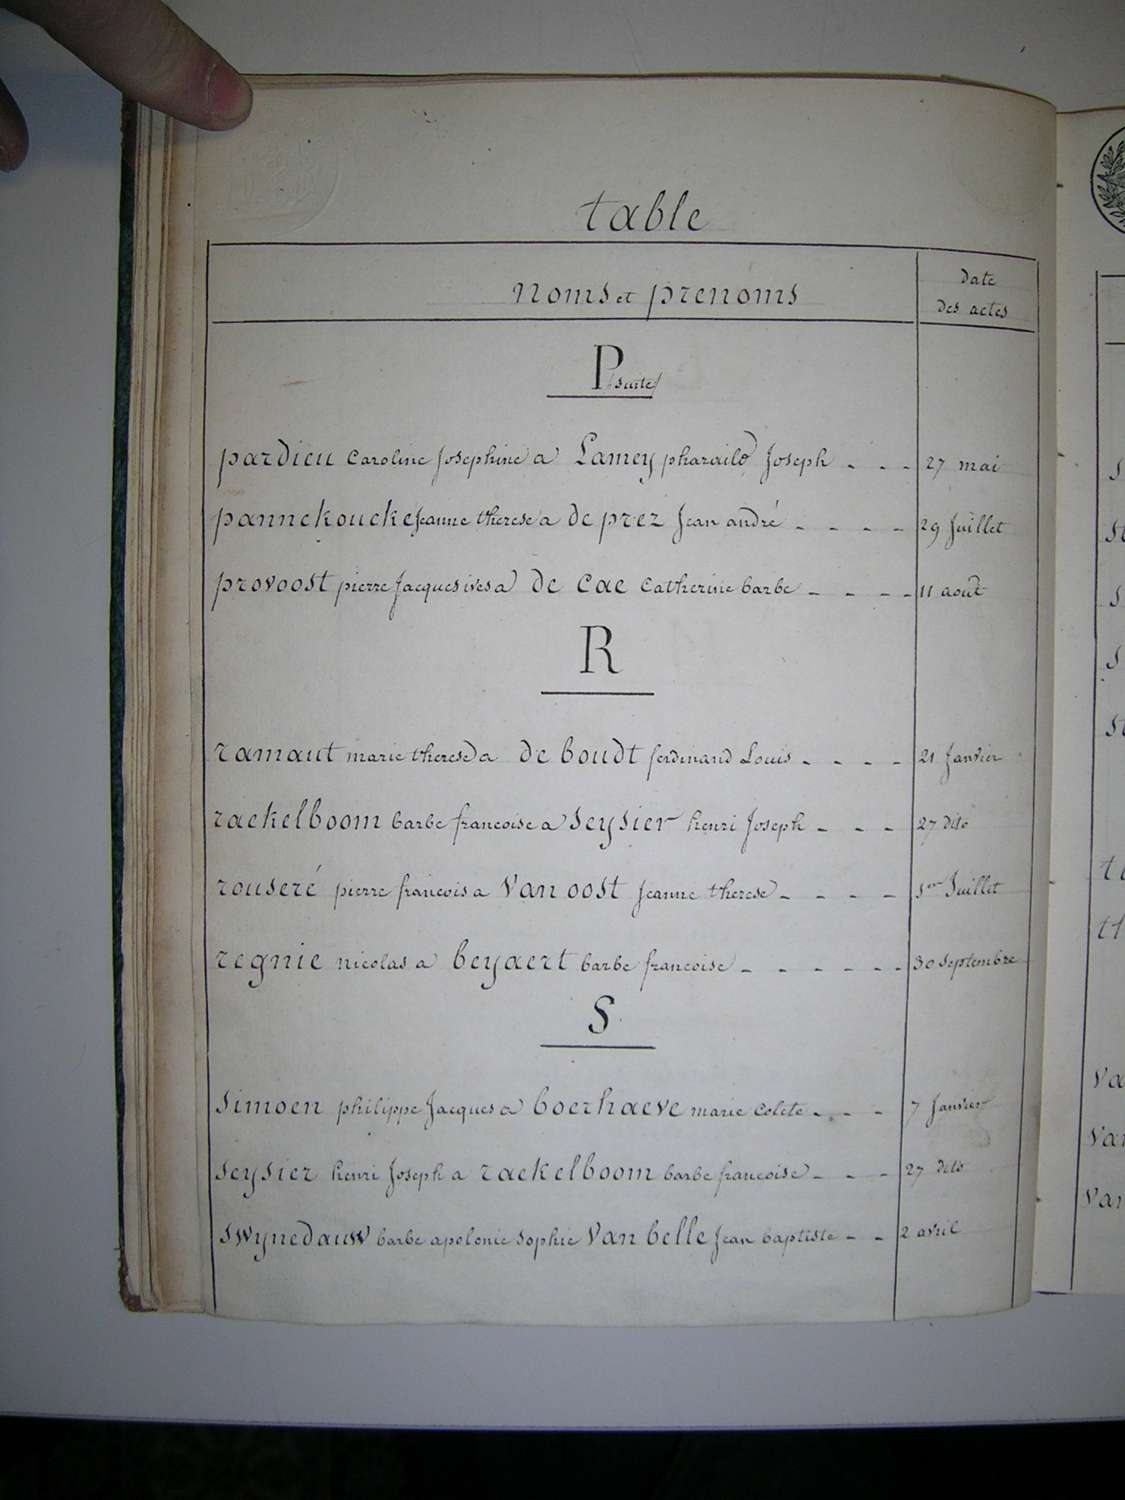 table
noms et prenoms
Date
des actes
P (suite)
pardieu Caroline Josephine a Lamey pharaild Joseph - - - 27 mai
pannekoucke Jeanne therese a de prez Jean andré - - - - - 29 Juillet
provoost pierre Jacques ives a de cae Catherine barbe - - - - 11 août
R
ramaut marie therese a de boudt ferdinand Louis - - - - 21 Janvier
rackelboom barbe francoise a Seysier henri Joseph - - - 27 dito
rouseré pierre francois a Van oost Jeanne therese - - - - 1er Juillet
regnie nicolas a beyaert barbe francoise - - - - - - 30 Septembre
S
Simoen philippe Jacques a boerhaeve marie Colete - - - 7 Janvier
Seysier henri Joseph a rackelboom barbe francoise - - - 27 dito
Swynedauw barbe apolonie Sophie Van belle Jean baptiste - - 2 avril